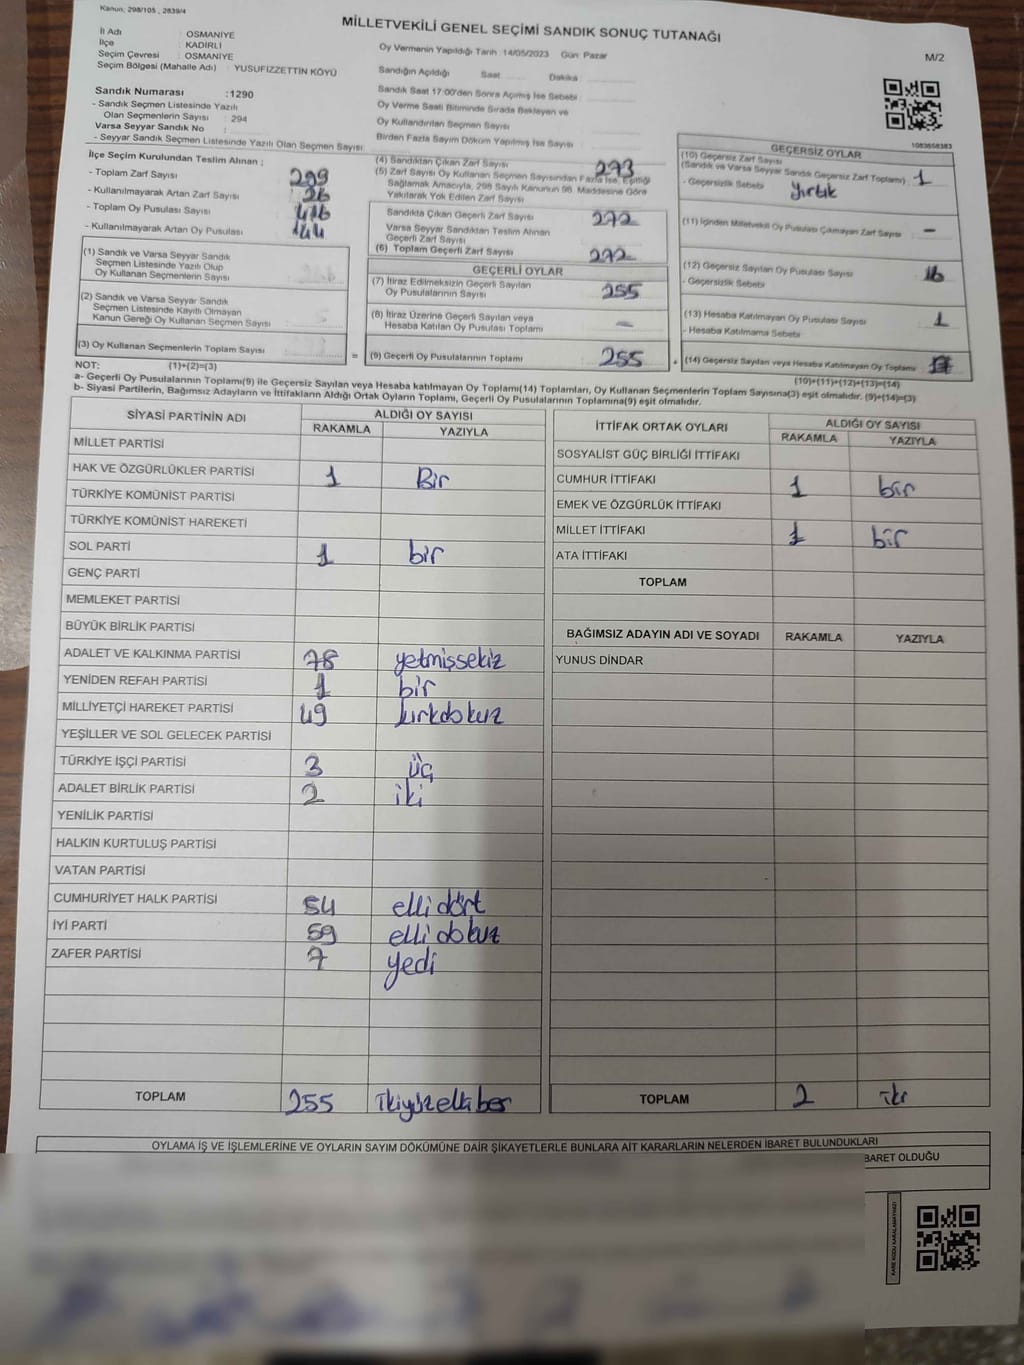 Kanun; 298/105 , 2839/4
MİLLETVEKİLİ GENEL SEÇİMİ SANDIK SONUÇ TUTANAĞI
M/2
İl Adı : OSMANİYE
İlçe : KADİRLİ
Seçim Çevresi : OSMANİYE
Seçim Bölgesi (Mahalle Adı) : YUSUFİZZETTİN KÖYÜ
Sandık Numarası :1290
- Sandık Seçmen Listesinde Yazılı
Olan Seçmenlerin Sayısı : 294
Varsa Seyyar Sandık No :
- Seyyar Sandık Seçmen Listesinde Yazılı Olan Seçmen Sayısı:
Oy Vermenin Yapıldığı Tarih :14/05/2023 Gün: Pazar
Sandığın Açıldığı Saat: Dakika:
Sandık Saat 17:00'den Sonra Açılmış İse Sebebi :
Oy Verme Saati Bitiminde Sırada Bekleyen ve
Oy Kullandırılan Seçmen Sayısı :
Birden Fazla Sayım Döküm Yapılmış İse Sayısı :
1083658383
İlçe Seçim Kurulundan Teslim Alınan ;
- Toplam Zarf Sayısı : 299
- Kullanılmayarak Artan Zarf Sayısı : 26
- Toplam Oy Pusulası Sayısı : 416
- Kullanılmayarak Artan Oy Pusulası : 144
(1) Sandık ve Varsa Seyyar Sandık
Seçmen Listesinde Yazılı Olup
Oy Kullanan Seçmenlerin Sayısı :
(2) Sandık ve Varsa Seyyar Sandık
Seçmen Listesinde Kayıtlı Olmayan
Kanun Gereği Oy Kullanan Seçmen Sayısı :
(3) Oy Kullanan Seçmenlerin Toplam Sayısı :
(4) Sandıktan Çıkan Zarf Sayısı : 273
(5) Zarf Sayısı Oy Kullanan Seçmen Sayısından Fazla İse, Eşitliği
Sağlamak Amacıyla, 298 Sayılı Kanunun 98. Maddesine Göre
Yakılarak Yok Edilen Zarf Sayısı :
Sandıkta Çıkan Geçerli Zarf Sayısı : 272
Varsa Seyyar Sandıktan Teslim Alınan
Geçerli Zarf Sayısı :
(6) Toplam Geçerli Zarf Sayısı : 272
GEÇERLİ OYLAR
(7) İtiraz Edilmeksizin Geçerli Sayılan
Oy Pusulalarının Sayısı : 255
(8) İtiraz Üzerine Geçerli Sayılan veya
Hesaba Katılan Oy Pusulası Toplamı : -
= (9) Geçerli Oy Pusulalarının Toplamı : 255 +
GEÇERSİZ OYLAR
(10) Geçersiz Zarf Sayısı
(Sandık ve Varsa Seyyar Sandık Geçersiz Zarf Toplamı) : 1
- Geçersizlik Sebebi : Yırtık
(11) İçinden Milletvekili Oy Pusulası Çıkmayan Zarf Sayısı : -
(12) Geçersiz Sayılan Oy Pusulası Sayısı : 16
- Geçersizlik Sebebi
(13) Hesaba Katılmayan Oy Pusulası Sayısı : 1
- Hesaba Katılmama Sebebi :
(14) Geçersiz Sayılan veya Hesaba Katılmayan Oy Toplamı :
NOT: (1)+(2)=(3) (10)+(11)+(12)+(13)=(14)
a- Geçerli Oy Pusulalarının Toplamı(9) ile Geçersiz Sayılan veya Hesaba katılmayan Oy Toplamı(14) Toplamları, Oy Kullanan Seçmenlerin Toplam Sayısına(3) eşit olmalıdır. (9)+(14)=(3)
b- Siyasi Partilerin, Bağımsız Adayların ve İttifakların Aldığı Ortak Oyların Toplamı, Geçerli Oy Pusulalarının Toplamına(9) eşit olmalıdır.
SİYASİ PARTİNİN ADI ALDIĞI OY SAYISI
RAKAMLA YAZIYLA
MİLLET PARTİSİ
HAK VE ÖZGÜRLÜKLER PARTİSİ 1 Bir
TÜRKİYE KOMÜNİST PARTİSİ
TÜRKİYE KOMÜNİST HAREKETİ
SOL PARTİ 1 bir
GENÇ PARTİ
MEMLEKET PARTİSİ
BÜYÜK BİRLİK PARTİSİ
ADALET VE KALKINMA PARTİSİ 78 yetmişsekiz
YENİDEN REFAH PARTİSİ 1 bir
MİLLİYETÇİ HAREKET PARTİSİ 49 kırkdokuz
YEŞİLLER VE SOL GELECEK PARTİSİ
TÜRKİYE İŞÇİ PARTİSİ 3 üç
ADALET BİRLİK PARTİSİ 2 iki
YENİLİK PARTİSİ
HALKIN KURTULUŞ PARTİSİ
VATAN PARTİSİ
CUMHURİYET HALK PARTİSİ 54 elli dört
İYİ PARTİ 59 elli dokuz
ZAFER PARTİSİ 7 yedi
TOPLAM 255 ikiyüzellibeş
İTTİFAK ORTAK OYLARI ALDIĞI OY SAYISI
RAKAMLA YAZIYLA
SOSYALİST GÜÇ BİRLİĞİ İTTİFAKI
CUMHUR İTTİFAKI 1 bir
EMEK VE ÖZGÜRLÜK İTTİFAKI
MİLLET İTTİFAKI 1 bir
ATA İTTİFAKI
TOPLAM
BAĞIMSIZ ADAYIN ADI VE SOYADI RAKAMLA YAZIYLA
YUNUS DİNDAR
TOPLAM 2 iki
OYLAMA İŞ VE İŞLEMLERİNE VE OYLARIN SAYIM DÖKÜMÜNE DAİR ŞİKAYETLERLE BUNLARA AİT KARARLARIN NELERDEN İBARET BULUNDUKLARI
BARET OLDUĞU
KARE KODU KARALAMAYINIZ!